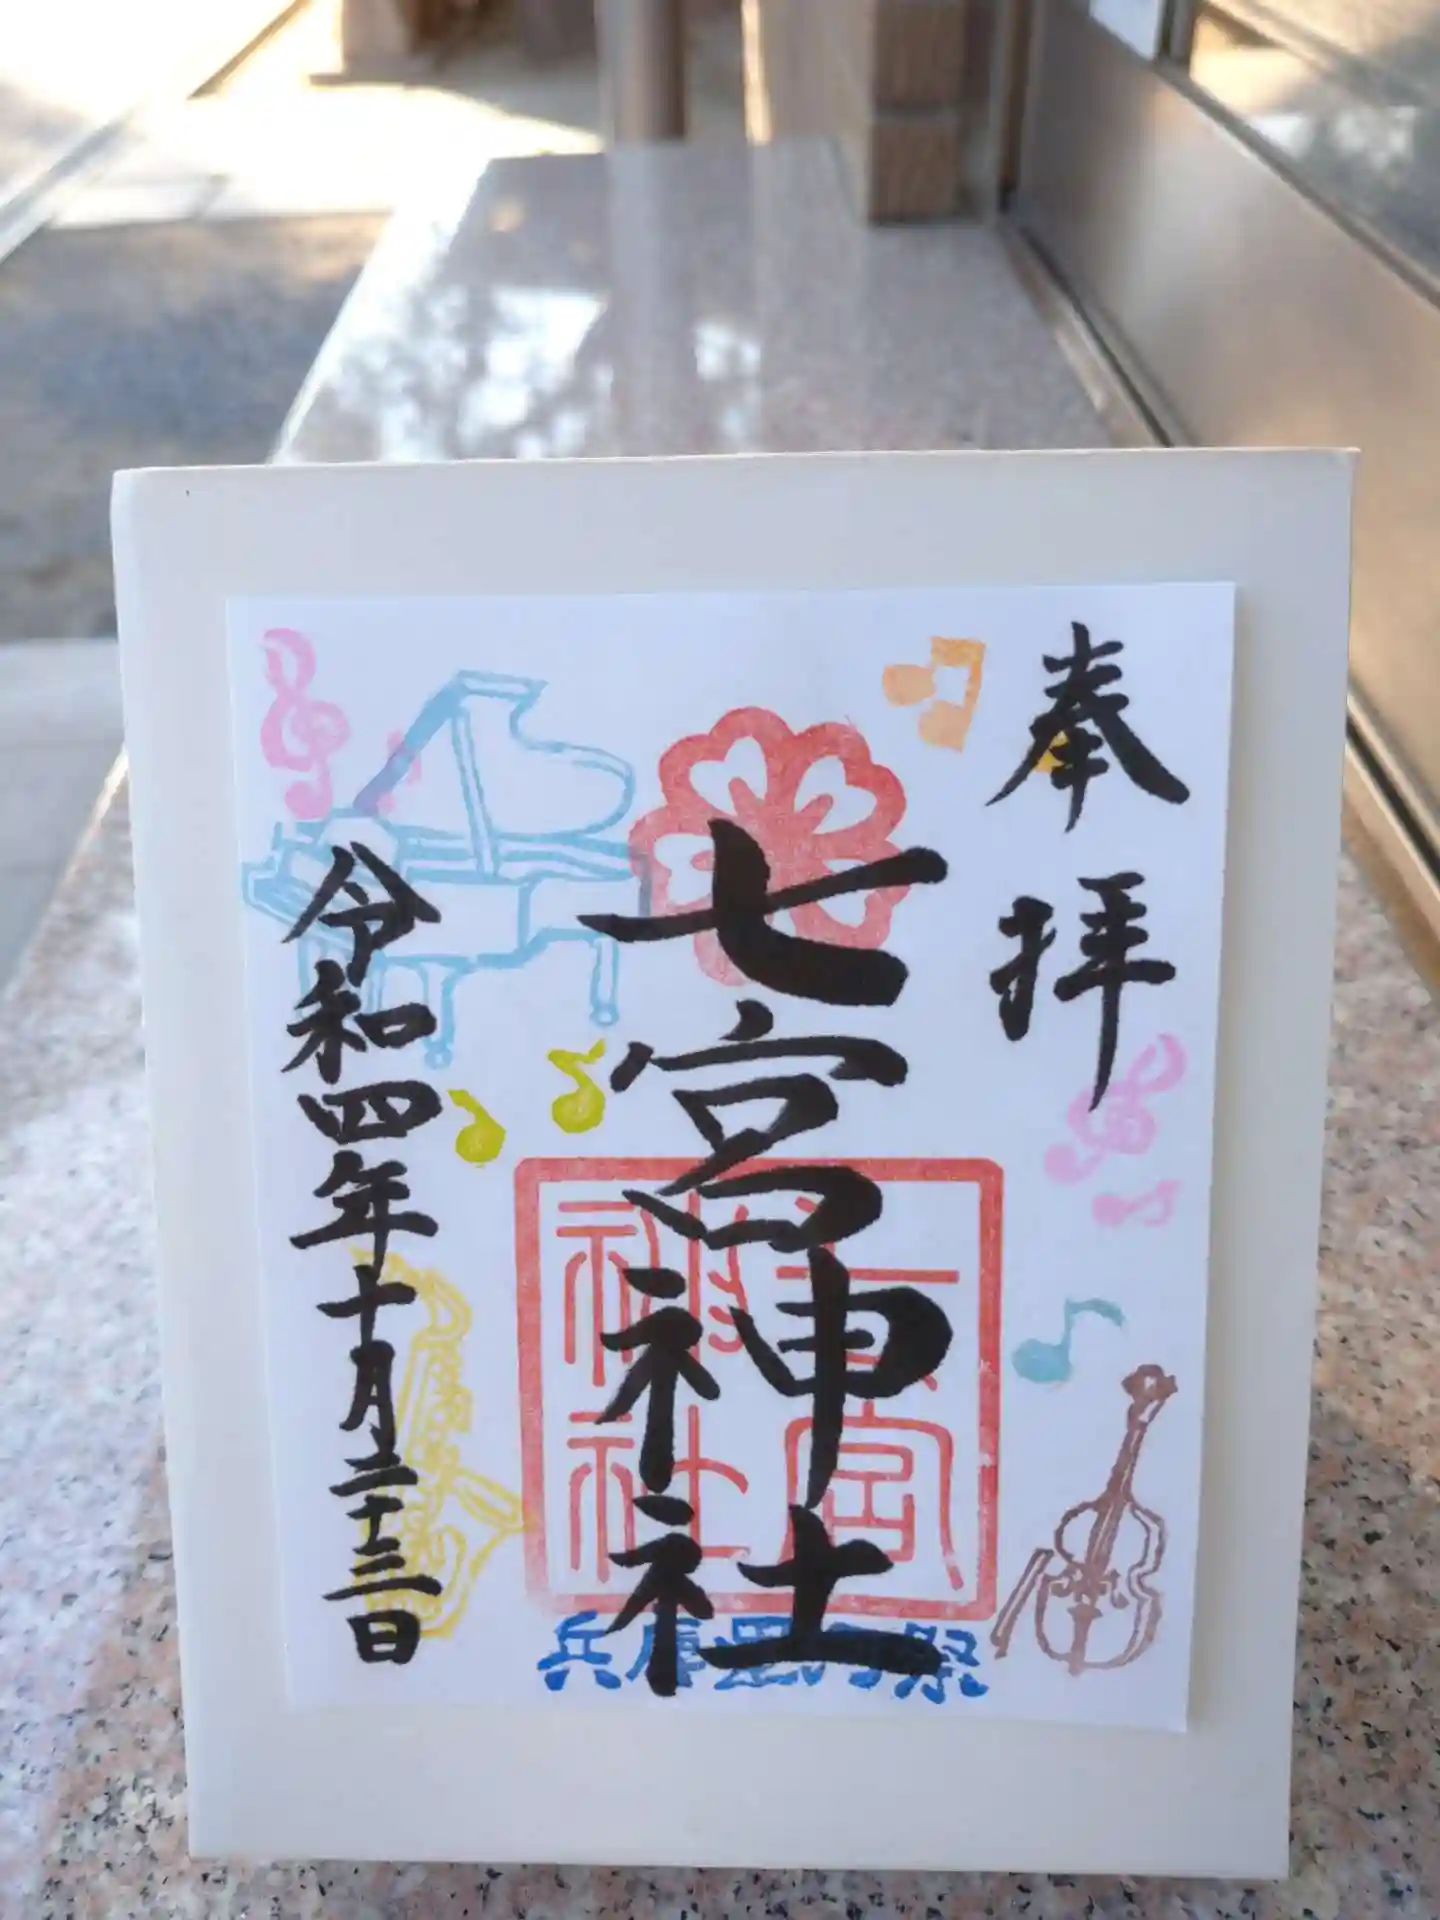 奉拝
七宮神社
令和四年十月二十三日
七宮神社
兵庫運河祭